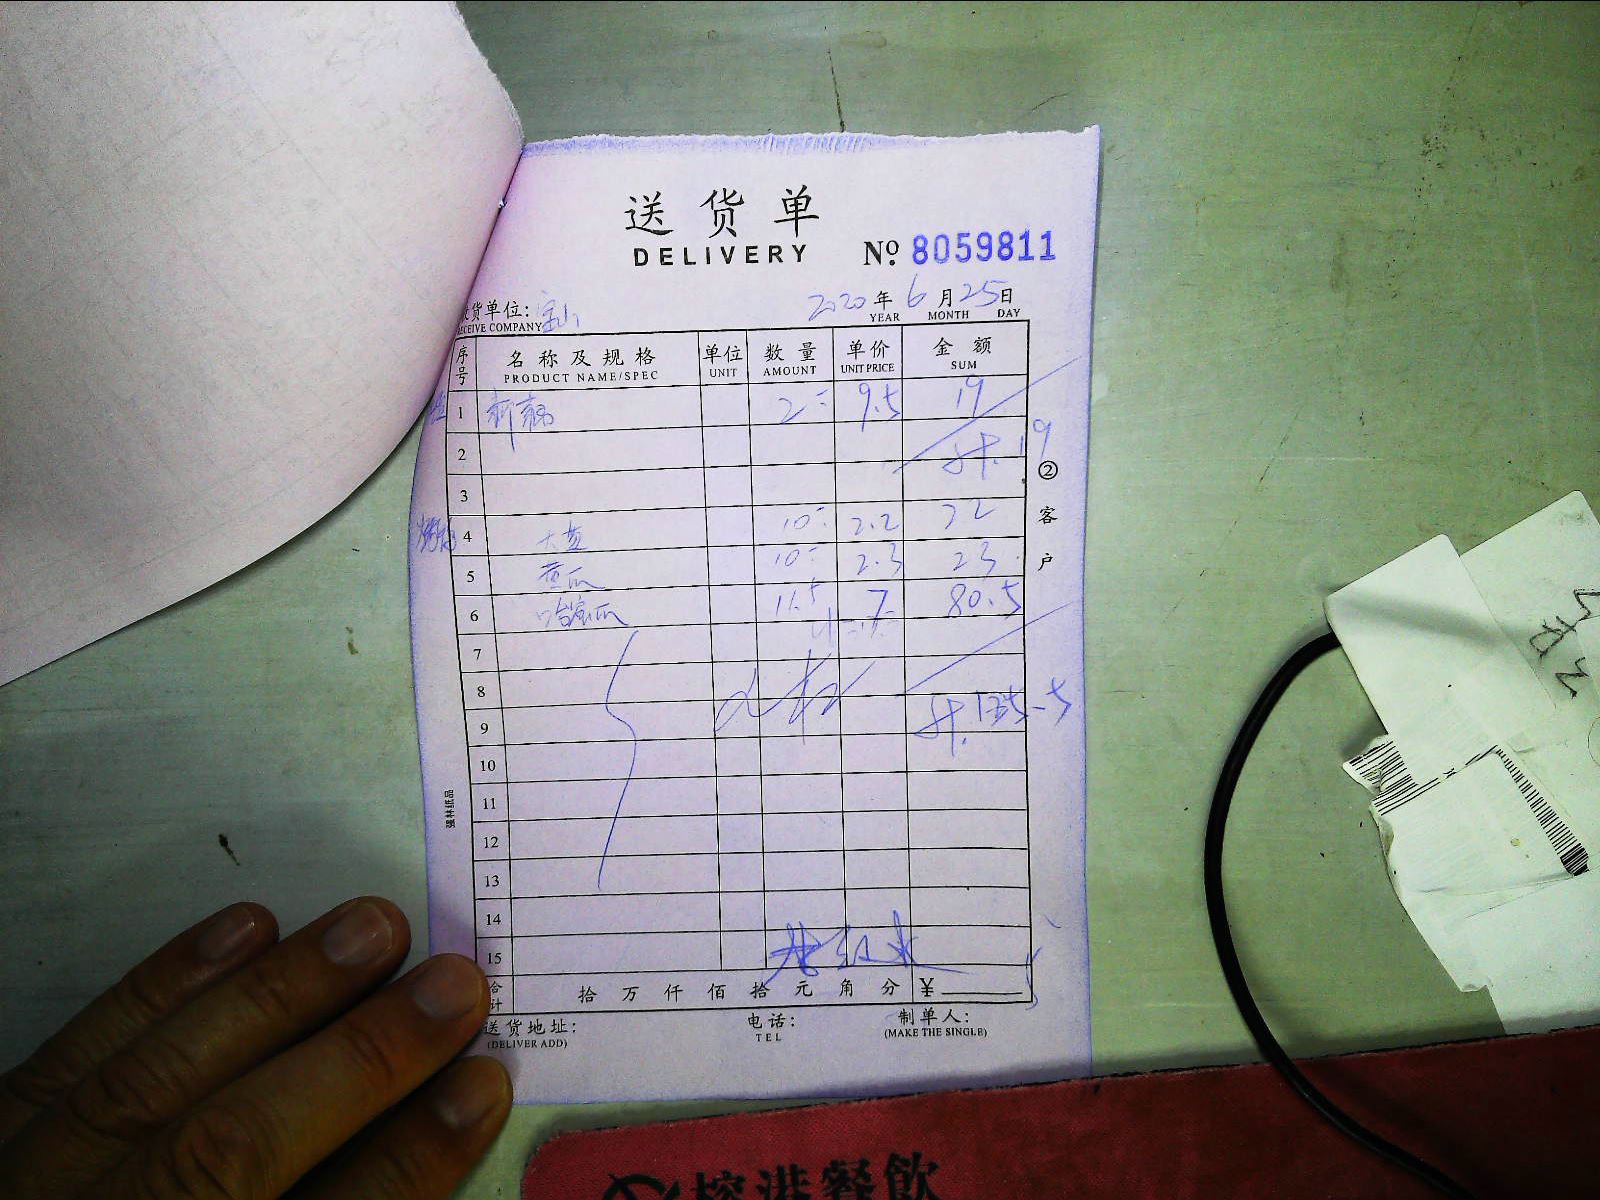 送货单
DELIVERY № 8059811
2020年6月25日
YEAR MONTH DAY
货单位:宝山
CEIVE COMPANY
序号 名称及规格 单位 数量 单价 金额
PRODUCT NAME/SPEC UNIT AMOUNT UNIT PRICE SUM
1 2 9.5 19
2 计.19
3
4 大黄 10 2.2 22
5 黄瓜 10 2.3 23
6 哈密瓜 11.5 7 80.5
7
8
9 计.125.5
10
11
12
13
14
15
合计 拾万仟佰拾元角分 ¥
送货地址: 电话: 制单人:
(DELIVER ADD) TEL (MAKE THE SINGLE)
②客户
强林纸品
餐飲